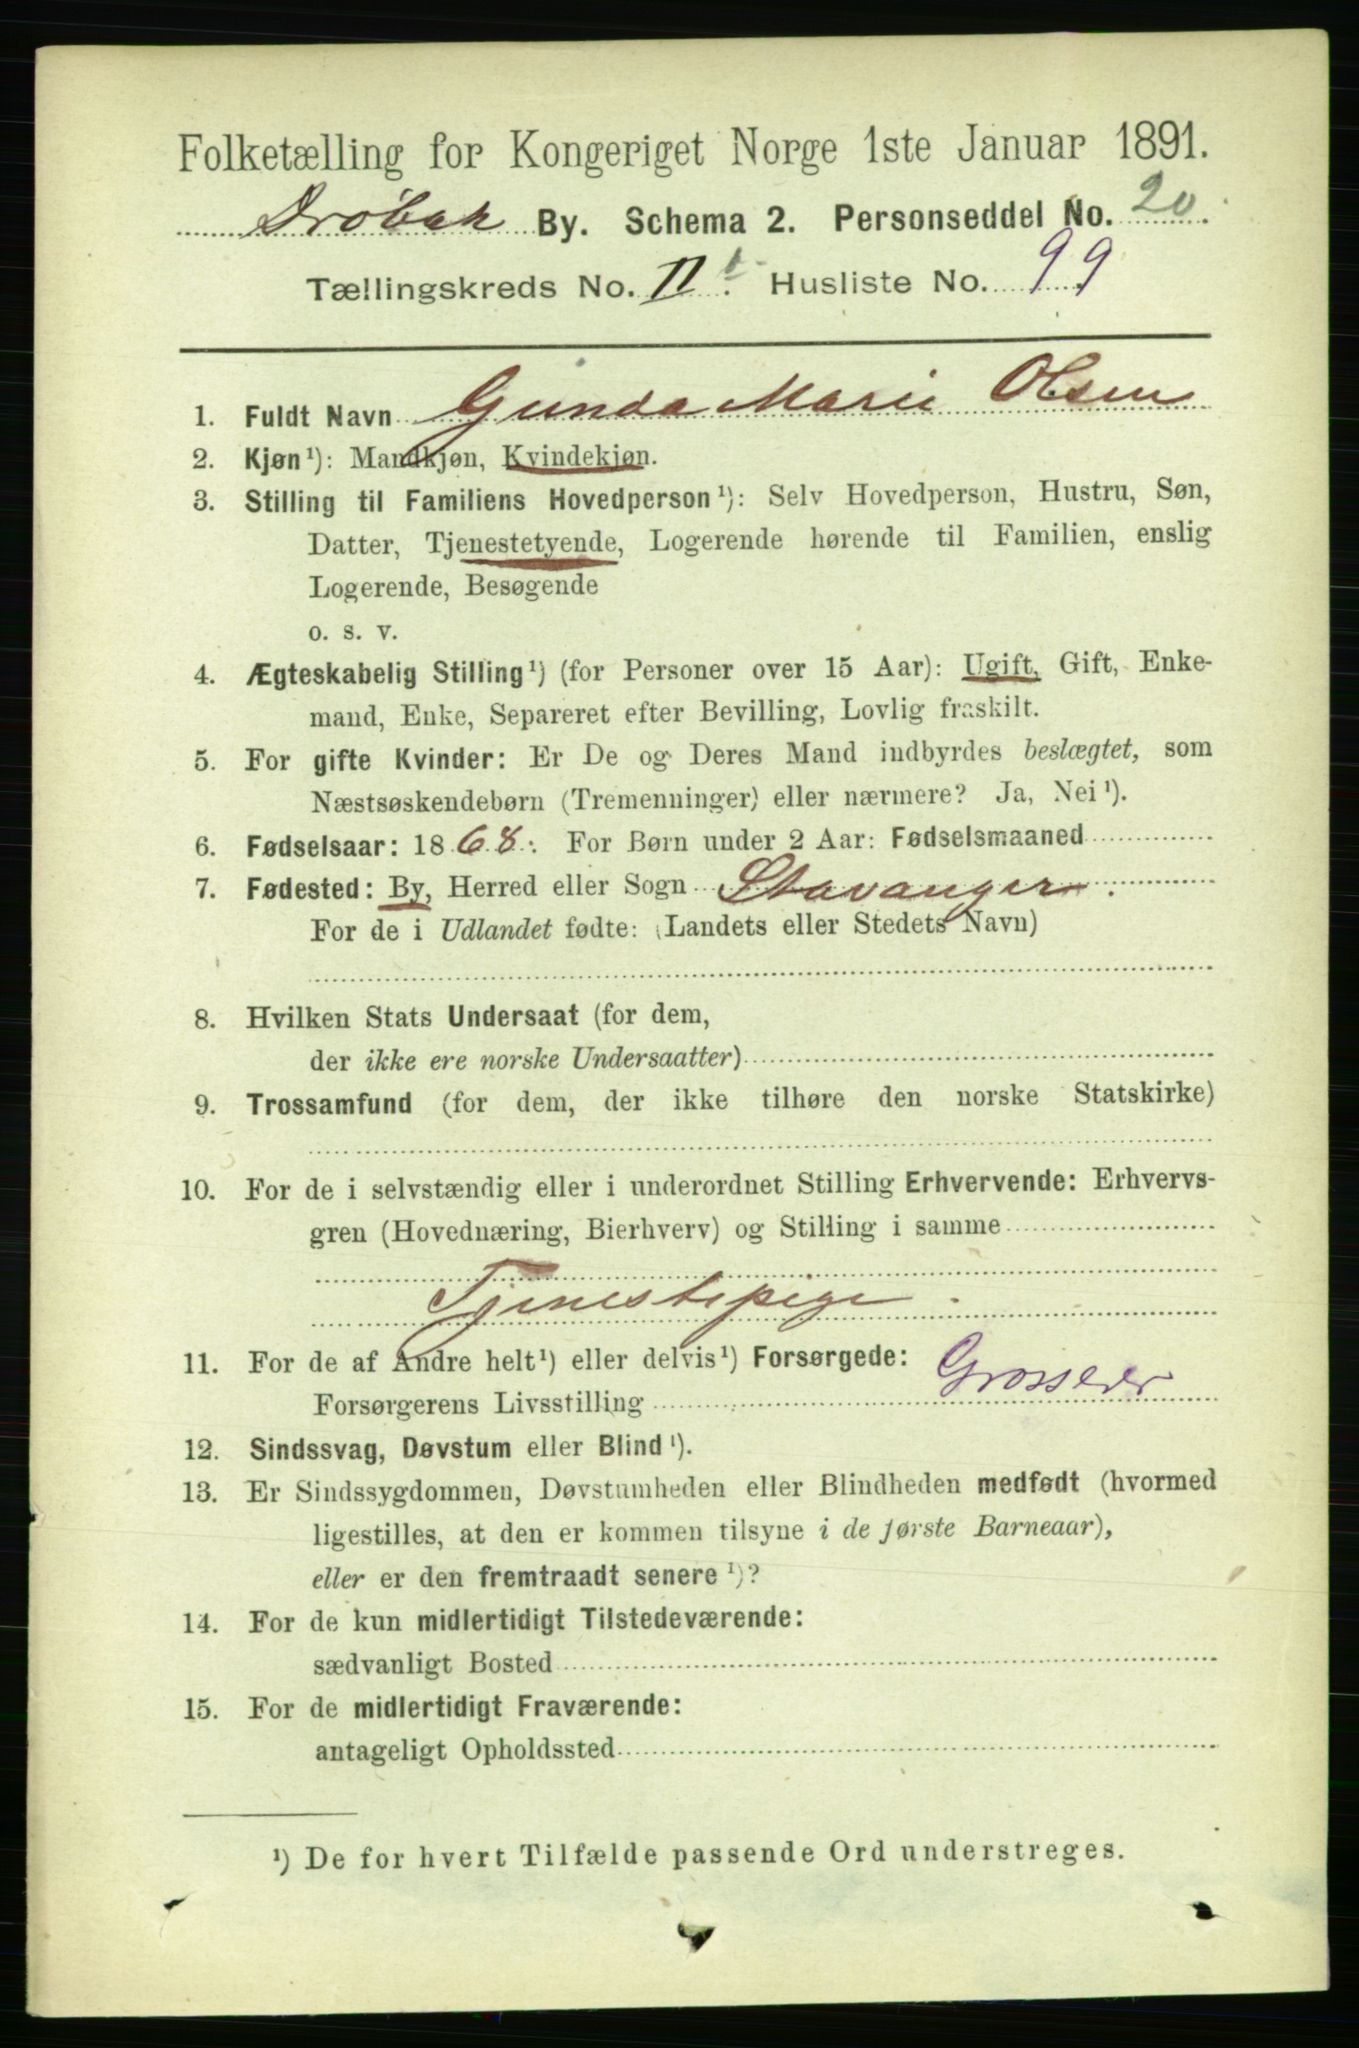 Folketælling for Kongeriget Norge 1ste Januar 1891.
Drøbak By. Schema 2. Personseddel No. 20.
Tællingskreds No. II. Husliste No. 99
1. Fuldt Navn Gunda Marie Olsen
2. Kjøn¹): Mandkjøn, Kvindekjøn.
3. Stilling til Familiens Hovedperson¹): Selv Hovedperson, Hustru, Søn,
Datter, Tjenestetyende, Logerende hørende til Familien, enslig
Logerende, Besøgende
o. s. v.
4. Ægteskabelig Stilling¹) (for Personer over 15 Aar): Ugift, Gift, Enke-
mand, Enke, Separeret efter Bevilling, Lovlig fraskilt.
5. For gifte Kvinder: Er De og Deres Mand indbyrdes beslægtet, som
Næstsøskendebørn (Tremenninger) eller nærmere? Ja, Nei¹).
6. Fødselsaar: 1868. For Børn under 2 Aar: Fødselsmaaned
7. Fødested: By, Herred eller Sogn Stavanger.
For de i Udlandet fødte: (Landets eller Stedets Navn)
8. Hvilken Stats Undersaat (for dem,
der ikke ere norske Undersaatter)
9. Trossamfund (for dem, der ikke tilhøre den norske Statskirke)
10. For de i selvstændig eller i underordnet Stilling Erhvervende: Erhvervs-
gren (Hovednæring, Bierhverv) og Stilling i samme
Tjenestepige.
11. For de af Andre helt¹) eller delvis¹) Forsørgede:
Forsørgerens Livsstilling Grosserer
12. Sindssvag, Døvstum eller Blind¹).
13. Er Sindssygdommen, Døvstumheden eller Blindheden medfødt (hvormed
ligestilles, at den er kommen tilsyne i de første Barneaar),
eller er den fremtraadt senere¹)?
14. For de kun midlertidigt Tilstedeværende:
sædvanligt Bosted
15. For de midlertidigt Fraværende:
antageligt Opholdssted
¹) De for hvert Tilfælde passende Ord understreges.